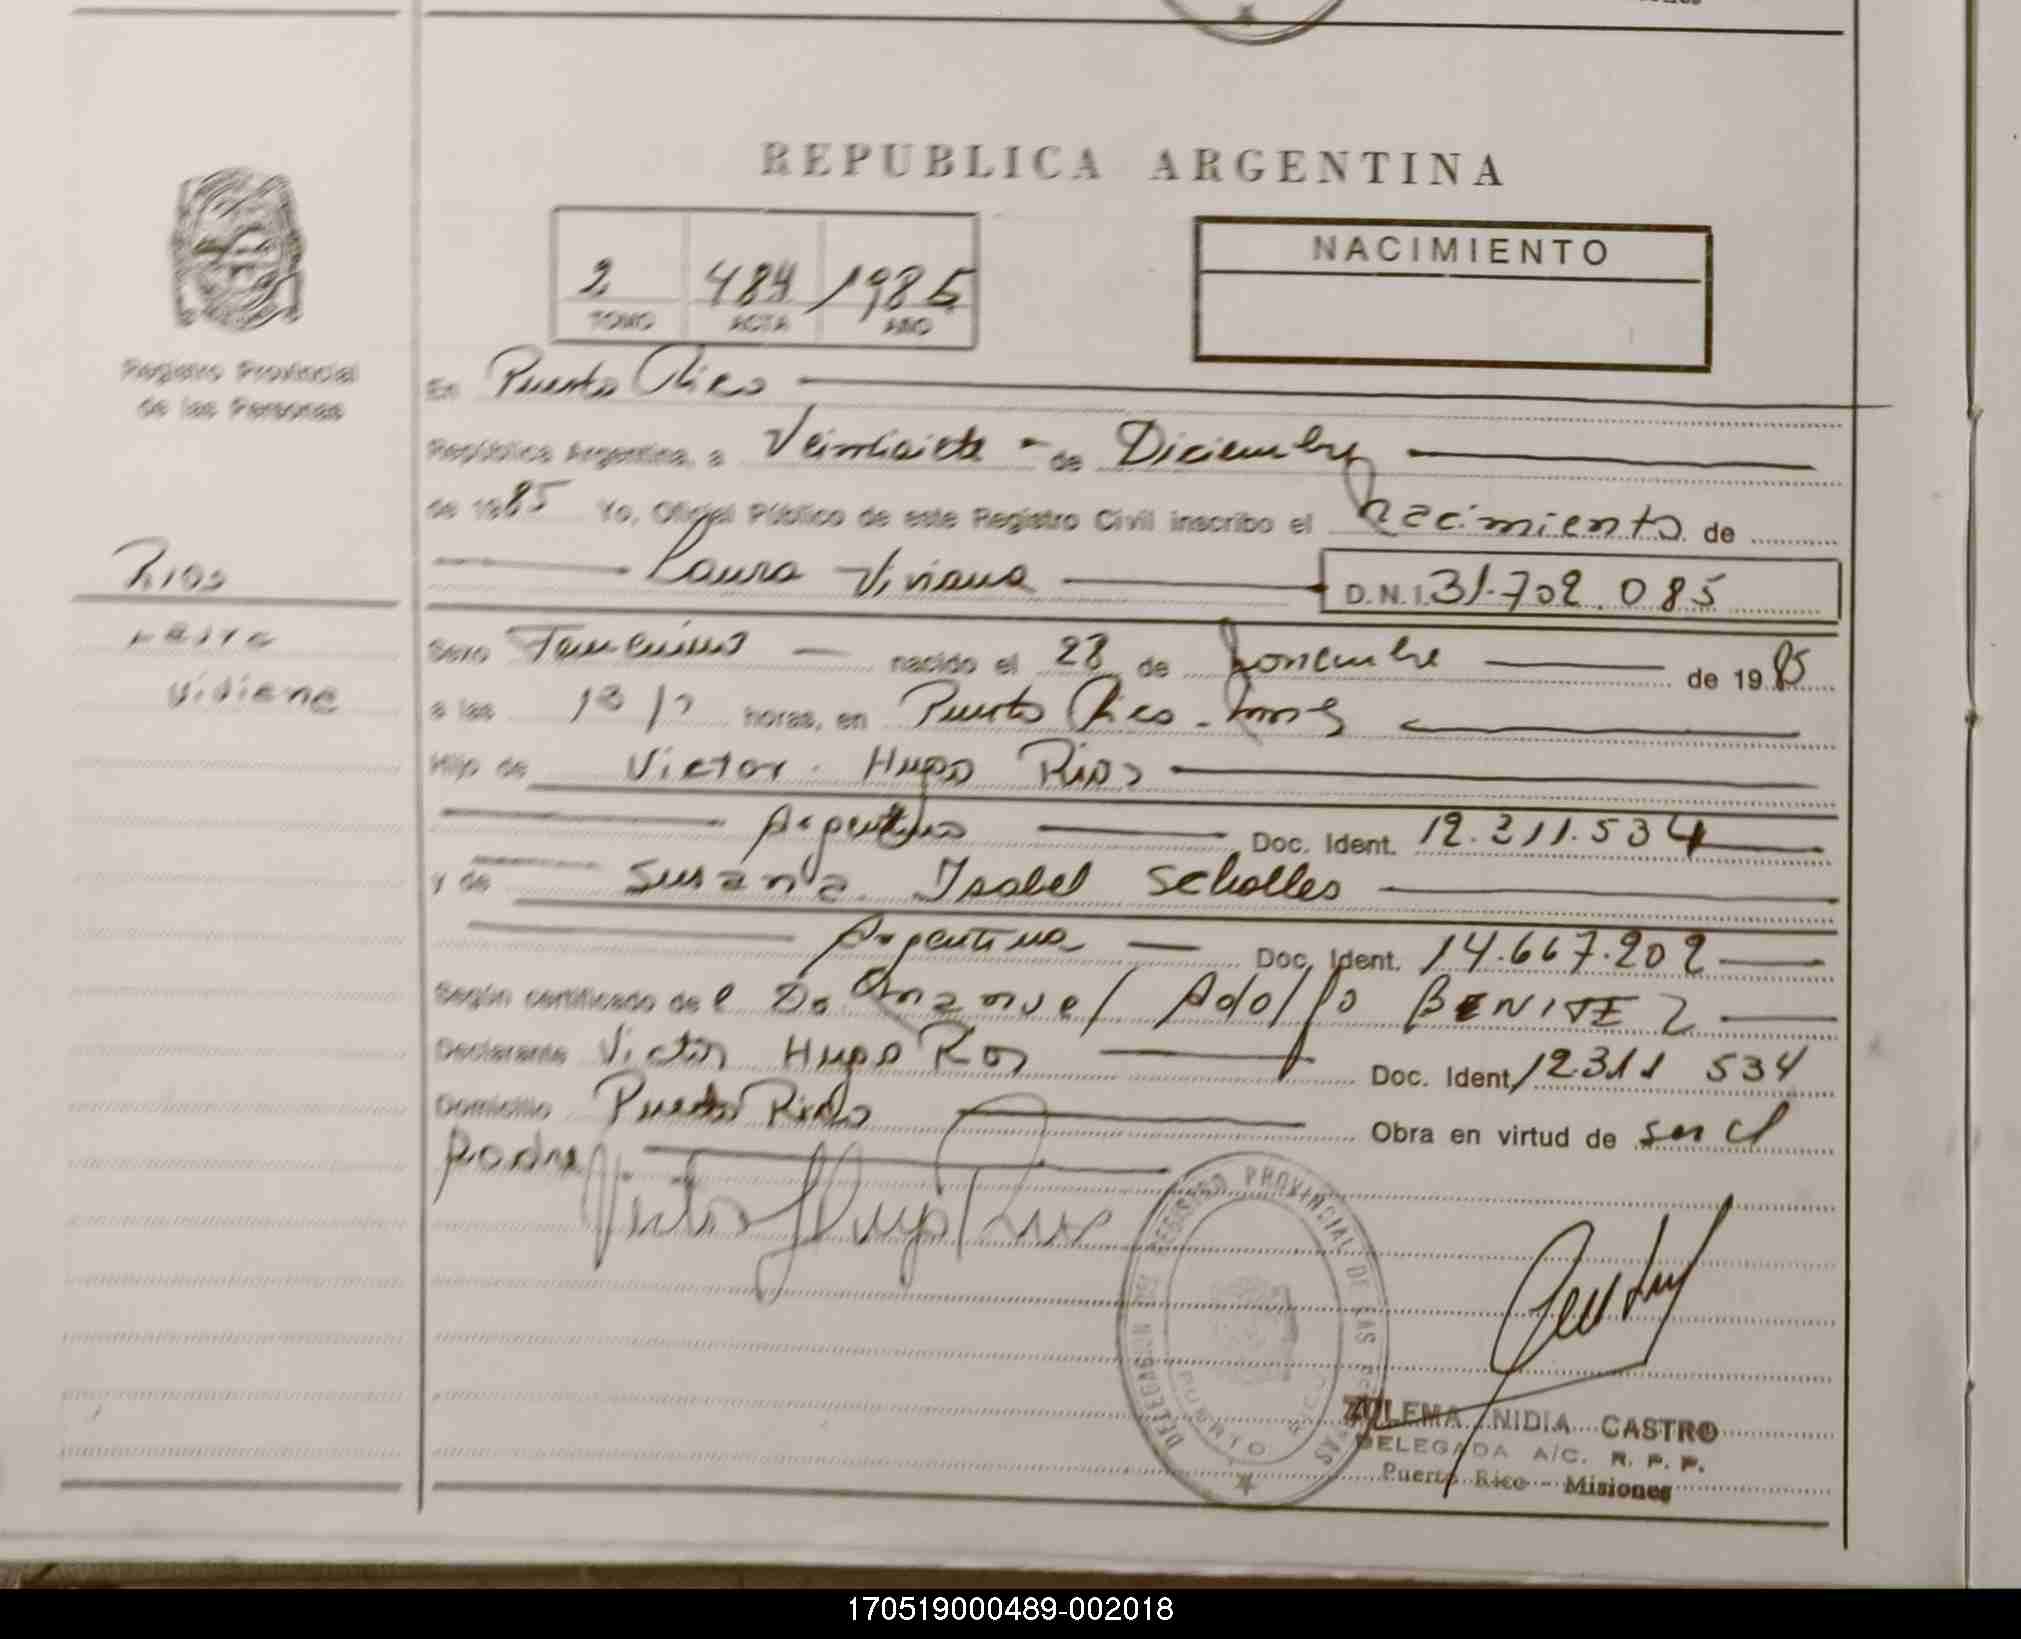 REPUBLICA ARGENTINA
NACIMIENTO
2 484 1985
TOMO ACTA AÑO
Registro Provincial
de las Personas
En Puerto Rico
República Argentina, a Veintisiete de Diciembre
de 1985 Yo, Oficial Público de este Registro Civil inscribo el nacimiento de
Laura Viviana D.N.I. 31.702.085
Rios
Laura
Viviana
Sexo Femenino nacido el 28 de Noviembre de 1985
a las 13 horas, en Puerto Rico - Mnes
Hijo de Victor Hugo Rios
Argentino Doc. Ident. 12.311.534
y de Susana Isabel Scholles
Argentina Doc. Ident. 14.667.202
Según certificado de el Dr. Manuel Adolfo BENITEZ
Declarante Victor Hugo Rios Doc. Ident. 12.311 534
Domicilio Puerto Rico Obra en virtud de ser el
padre
Victor Hugo Rios
DELEGACION DEL REGISTRO PROVINCIAL DE LAS PERSONAS
PUERTO RICO
ZULEMA NIDIA CASTRO
DELEGADA A/C. R. P. P.
Puerto Rico - Misiones
170519000489-002018